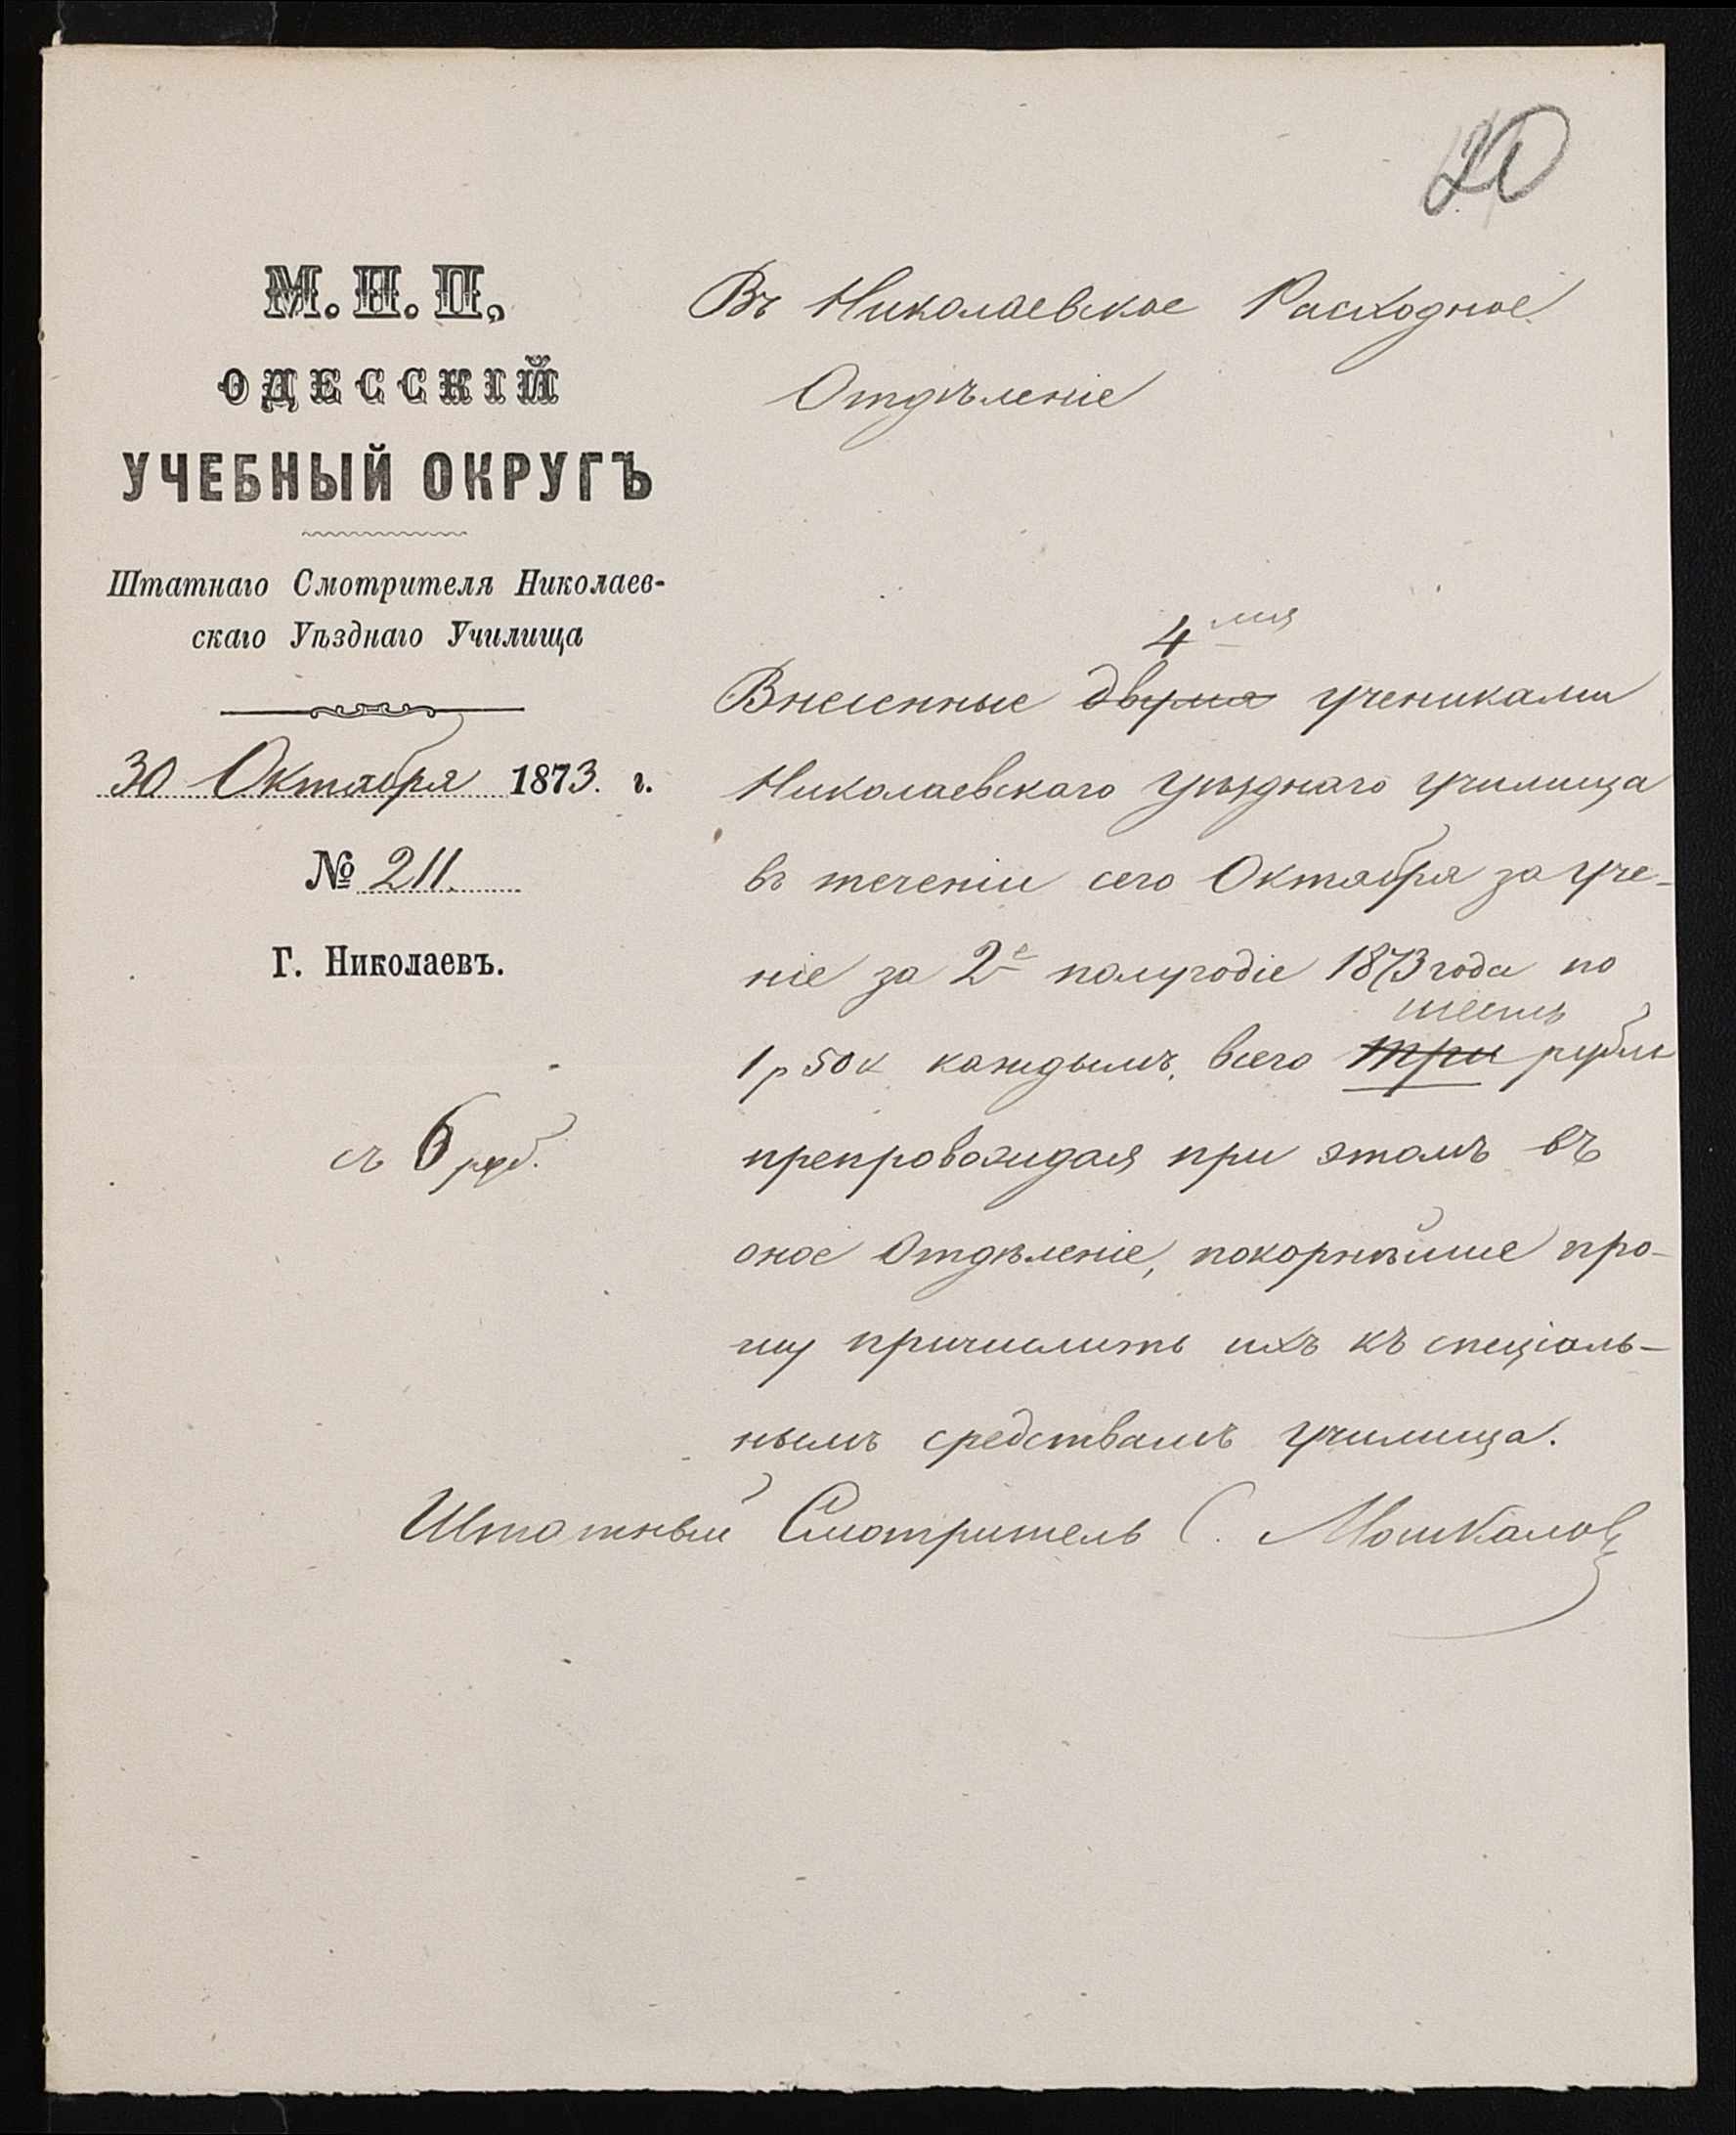 20
М. Н. П.
ОДЕССКІЙ
УЧЕБНЫЙ ОКРУГЪ
Штатнаго Смотрителя Николаев-
скаго Уѣзднаго Училища
30 Октября 1873. г.
№ 211.
Г. Николаевъ.
съ 6 руб.
Въ Николаевское Расходное
Отдѣленіе
4 мя
Внесенные двумя учениками
Николаевскаго Уѣзднаго училища
въ теченіи сего Октября за уче-
ніе за 2е полугодіе 1873 года по
шесть
1 р 50 к каждымъ, всего три рубли
препровождая при этомъ въ
оное Отдѣленіе, покорнѣйше про-
шу причислить ихъ къ спеціаль-
нымъ средствамъ училища.
Штатный Смотритель С. Мошкалов